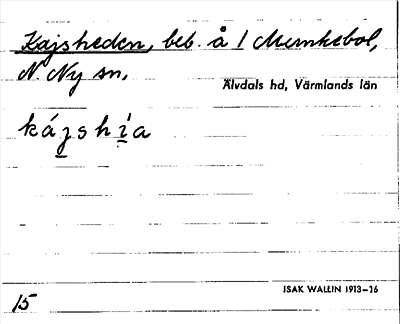 Kajsheden, beb. å 1 Munkebol,
N. Ny sn,
Älvdals hd, Värmlands län
kájshi̇́a
ISAK WALLIN 1913-16
15